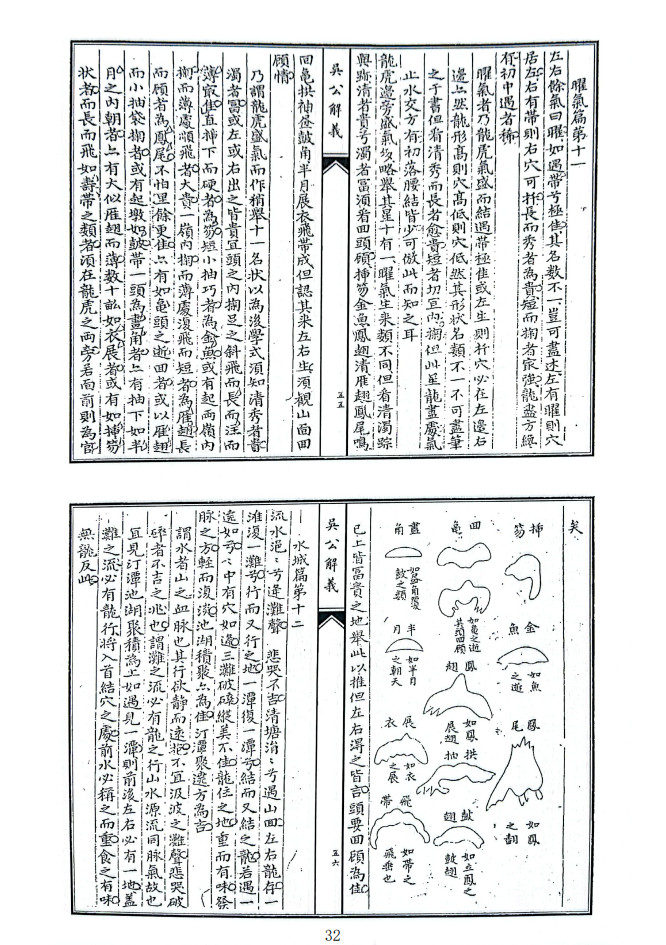 曜氣篇第十一
左右餘氣曰曜如遇帶兮極佳其名數不一豈可盡述左有曜則穴
居左右有帶則右穴可扦長而秀者為貴短而掬者家強龍盡方繇
柝初中遇者稀
曜氣者乃龍虎氣盛而結遇帶極佳或左生則扦穴必在左邊右
邊亦然龍形高則穴高低則穴低然其形狀名類不一不可盡筆
之于書但看清秀而長者愈貴短者切宜內掬但此星龍盡處氣
止水交方有初落腰結皆少可倣此而知之耳
龍虎邊旁盛氣攷略舉其星十有一曜氣生來類不同但看清濁踪
與跡清者貴兮濁者冨須看回頭顧揷笏金魚鳳翅清雁翅鳳尾鳴
回龜拱神盔皷角半月展衣飛帶成但認其來左右生須觀山面回
顧情
乃謂龍虎盛氣而作稍舉十一名狀以為後學式須知清秀者貴
濁者冨或左或右出之皆貴宜頭之內掬足之斜飛而長而注而
薄最佳直揷下而硬者為笏短小抽巧者為金魚或有起両嶺內
掬而薄處順飛者大貴一嶺內掬而薄處復飛而短者為雁翅長
而顧者為鳳尾不怕里餘更佳亦有如龜頭之逝回者或以雁翅
而小抽裳掬者或有起墩如皷帶一頭為畫角者亦有抽下如半
月之內朝者亦有大似雁翅而薄數十畝如衣展者或有如揷笏
狀者而長而飛如壽帶之類者須在龍虎之両旁若面前則為官
吳公解義
五五
矣
揷笏
金魚
如魚之逝
鳳尾
如鳳之翻
回龜
如龜之逝共頭回顧
鳳翅
如鳳展翅
拱抽
皷翅
如立鳳之皷翅
畫角
如盔角覆皷之類
半月
如半月之朝天
展衣
如衣之展
飛帶
如帶之飛垂也
已上皆冨貴之地舉此以推但左右淂之皆吉頭要回顧為佳
吳公解義
五六
水城篇第十二
流水滬〻兮逢灘聲悲哭不吉清塘㴞〻兮遇山回左右龍存一
灘復一灘兮行而又行之地一潭復一潭兮結而又結之龍若遇一
遠如兮〻中有穴如邊三灘破磽縱美不佳龍住之地重而有味發
脉之方輕而復淡池湖積聚亦為佳汀潭聚遶方為吉
謂水者山之血脉也其行欲静而遶抱不宜汲波之灘聲悲哭破
碎者不吉之兆也謂灘之流必有龍之行山水源流同脉氣故也
宜見汀潭池湖聚積為上如遇見一潭則前後左右必有一地盖
灘之流必有龍行將入首結穴之處前水必稱之而重食之有味
無龍反此
32